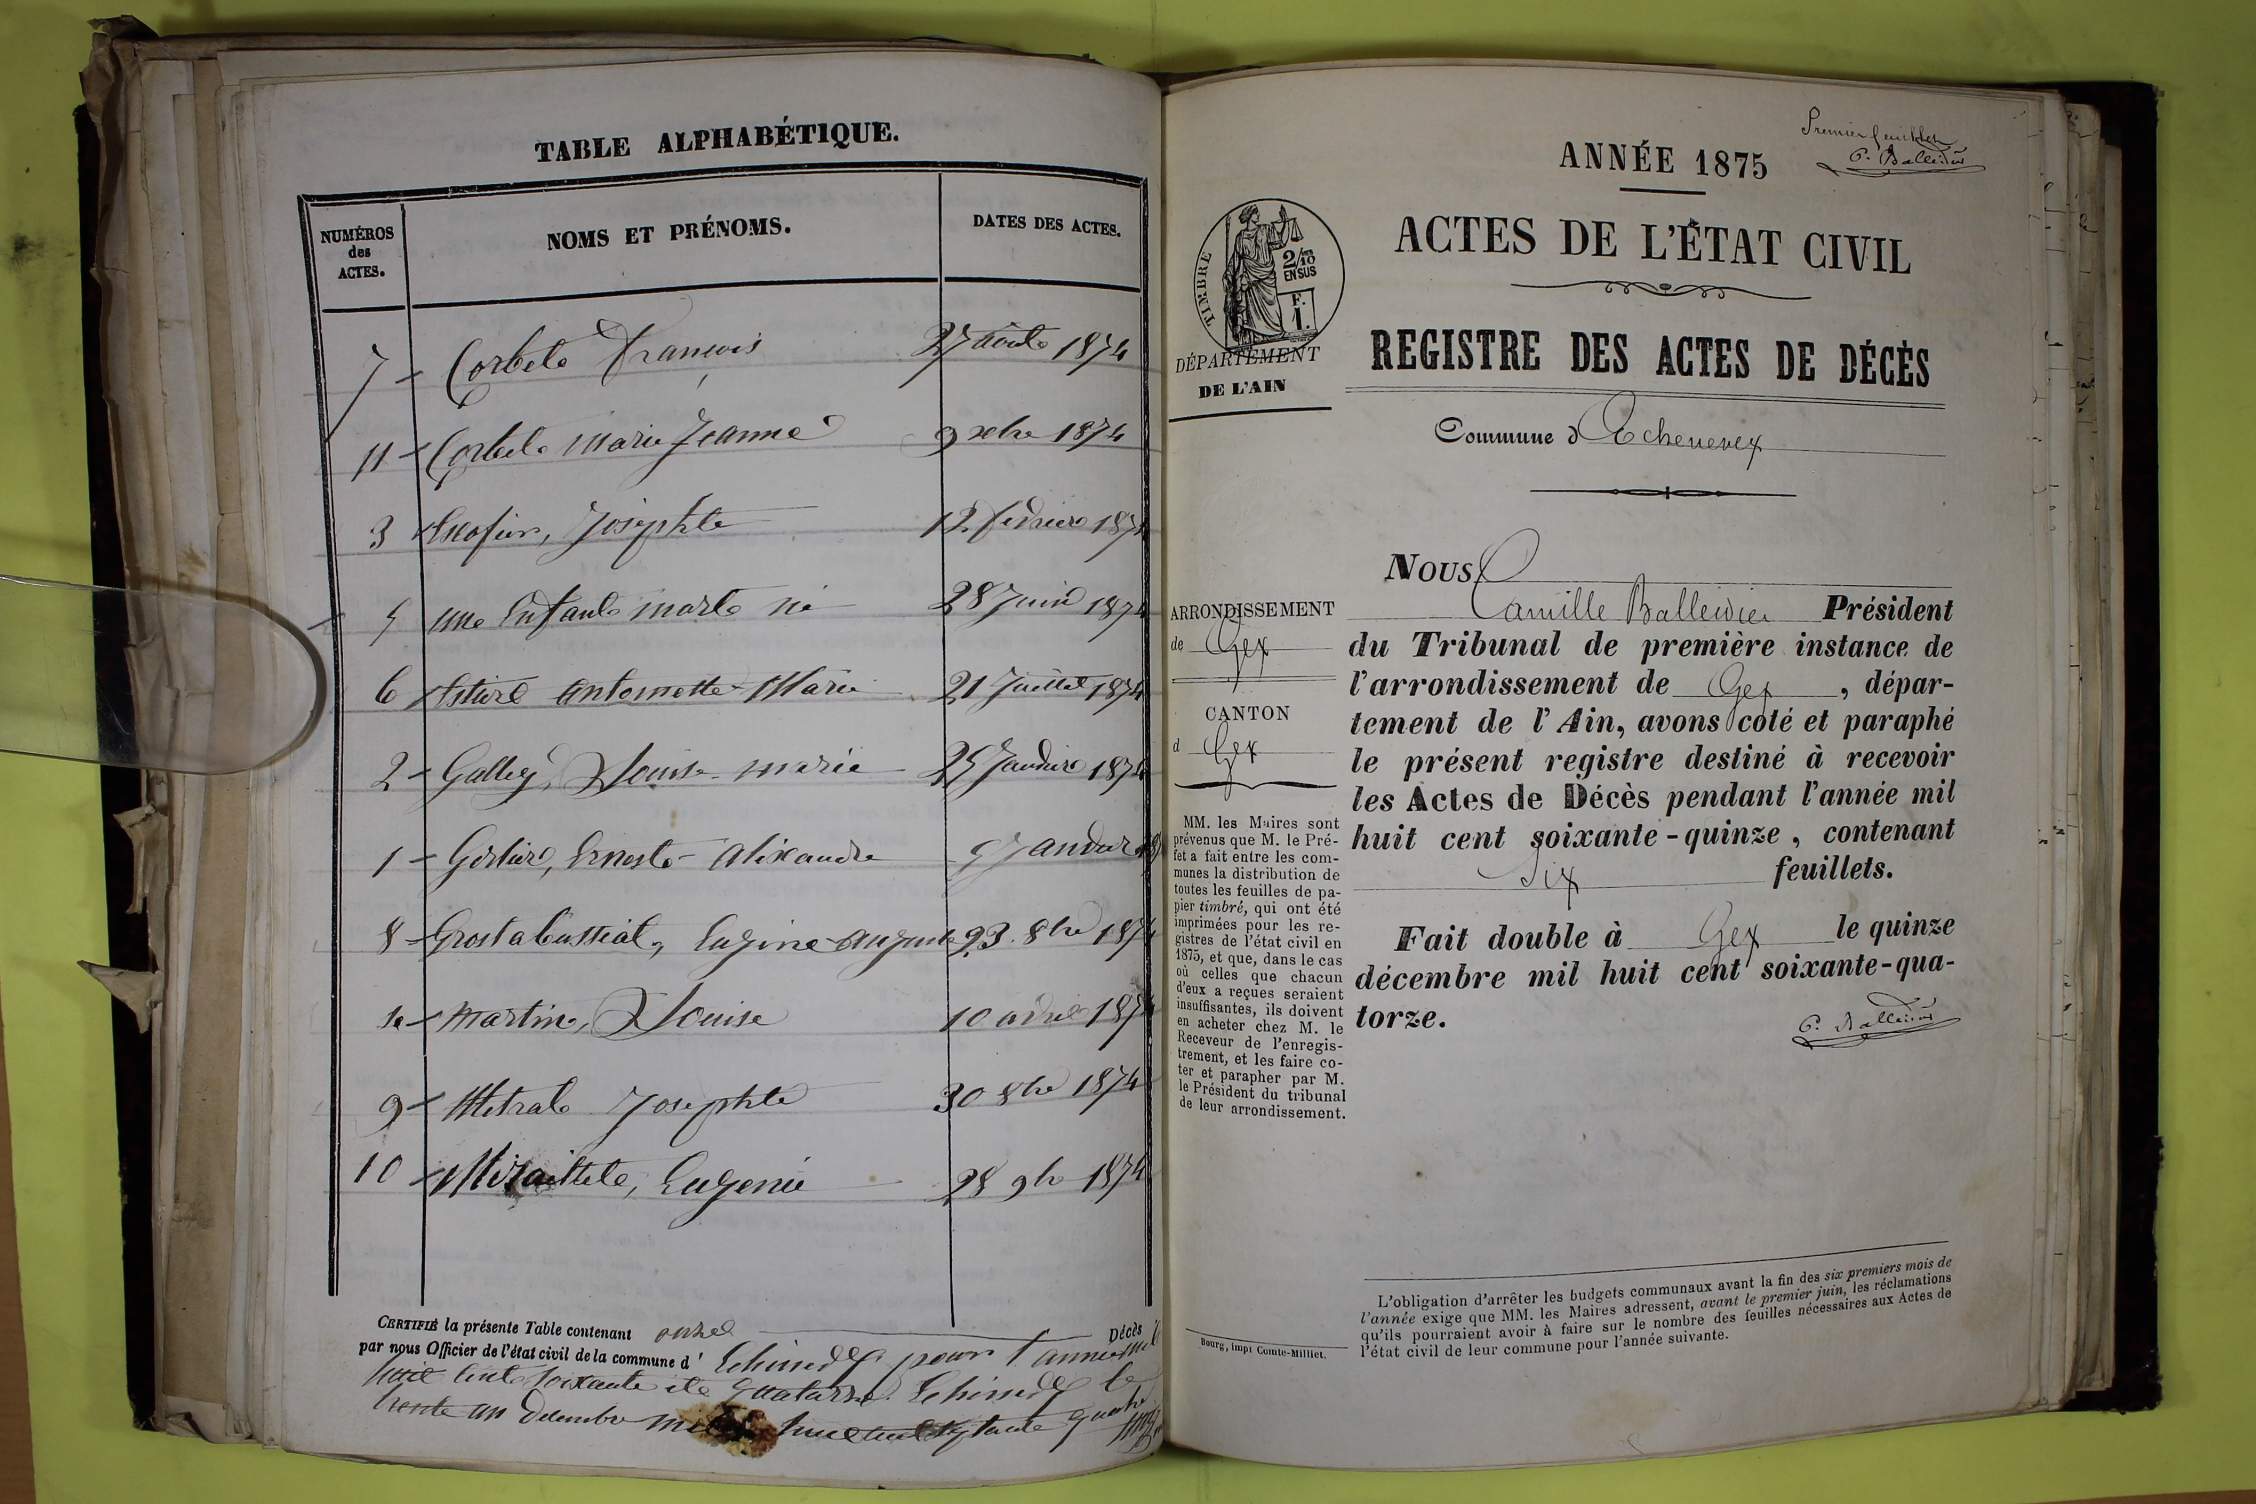 TABLE ALPHABÉTIQUE.
NUMÉROS des ACTES.
NOMS ET PRÉNOMS.
DATES DES ACTES.
7 Corbet François 27 août 1874
11 Corbet Marie Jeanne 9 xbre 1874
3 Josephte 12 février 1874
5 une Enfant morte né 28 Juin 1874
6 Antoinette Marie 21 Juillet 1874
2 Galley, Louise Marie 25 Janvier 1874
1 Ernest Alexandre 9 Janvier
8 Grostabussiat, Eugine Auguste 23 8bre 1874
4 Martin, Louise 10 avril 1874
9 Métral Josephte 30 8bre 1874
10 Eugenie 28 9bre 1874
CERTIFIÉ la présente Table contenant onze Décès
par nous Officier de l'état civil de la commune d' Echenevex pour l'année mil
huit cent soixante et quatorze. Echenevex le
trente un Décembre mil huit cent septante quatre
Premier feuillet
C. Balleidier
ANNÉE 1875
ACTES DE L'ÉTAT CIVIL
TIMBRE
2/10 EN SUS
F. 1.
DÉPARTEMENT
DE L'AIN
REGISTRE DES ACTES DE DÉCÈS
Commune d'Echenevex
ARRONDISSEMENT
de Gex
CANTON
d Gex
MM. les Maires sont
prévenus que M. le Pré-
fet a fait entre les com-
munes la distribution de
toutes les feuilles de pa-
pier timbré, qui ont été
imprimées pour les re-
gistres de l'état civil en
1875, et que, dans le cas
où celles que chacun
d'eux a reçues seraient
insuffisantes, ils doivent
en acheter chez M. le
Receveur de l'enregis-
trement, et les faire co-
ter et parapher par M.
le Président du tribunal
de leur arrondissement.
NOUS
Camille Balleidier Président
du Tribunal de première instance de
l'arrondissement de Gex, dépar-
tement de l'Ain, avons coté et paraphé
le présent registre destiné à recevoir
les Actes de Décès pendant l'année mil
huit cent soixante-quinze, contenant
Six feuillets.
Fait double à Gex le quinze
décembre mil huit cent soixante-qua-
torze.
C. Balleidier
L'obligation d'arrêter les budgets communaux avant la fin des six premiers mois de
l'année exige que MM. les Maires adressent, avant le premier juin, les réclamations
qu'ils pourraient avoir à faire sur le nombre des feuilles nécessaires aux Actes de
l'état civil de leur commune pour l'année suivante.
Bourg, impr Comte-Milliet.